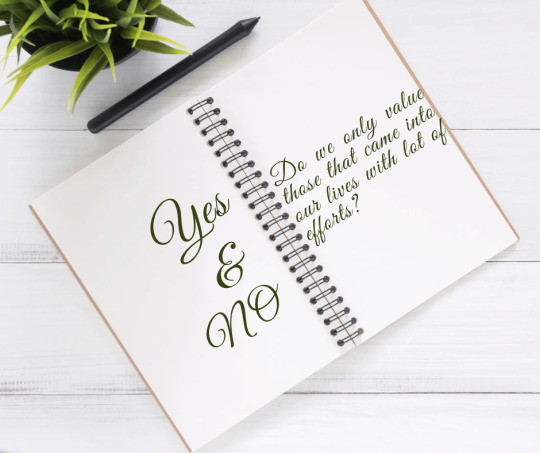 Yes
&
NO
Do we only value
those that came into
our lives with lot of
efforts?